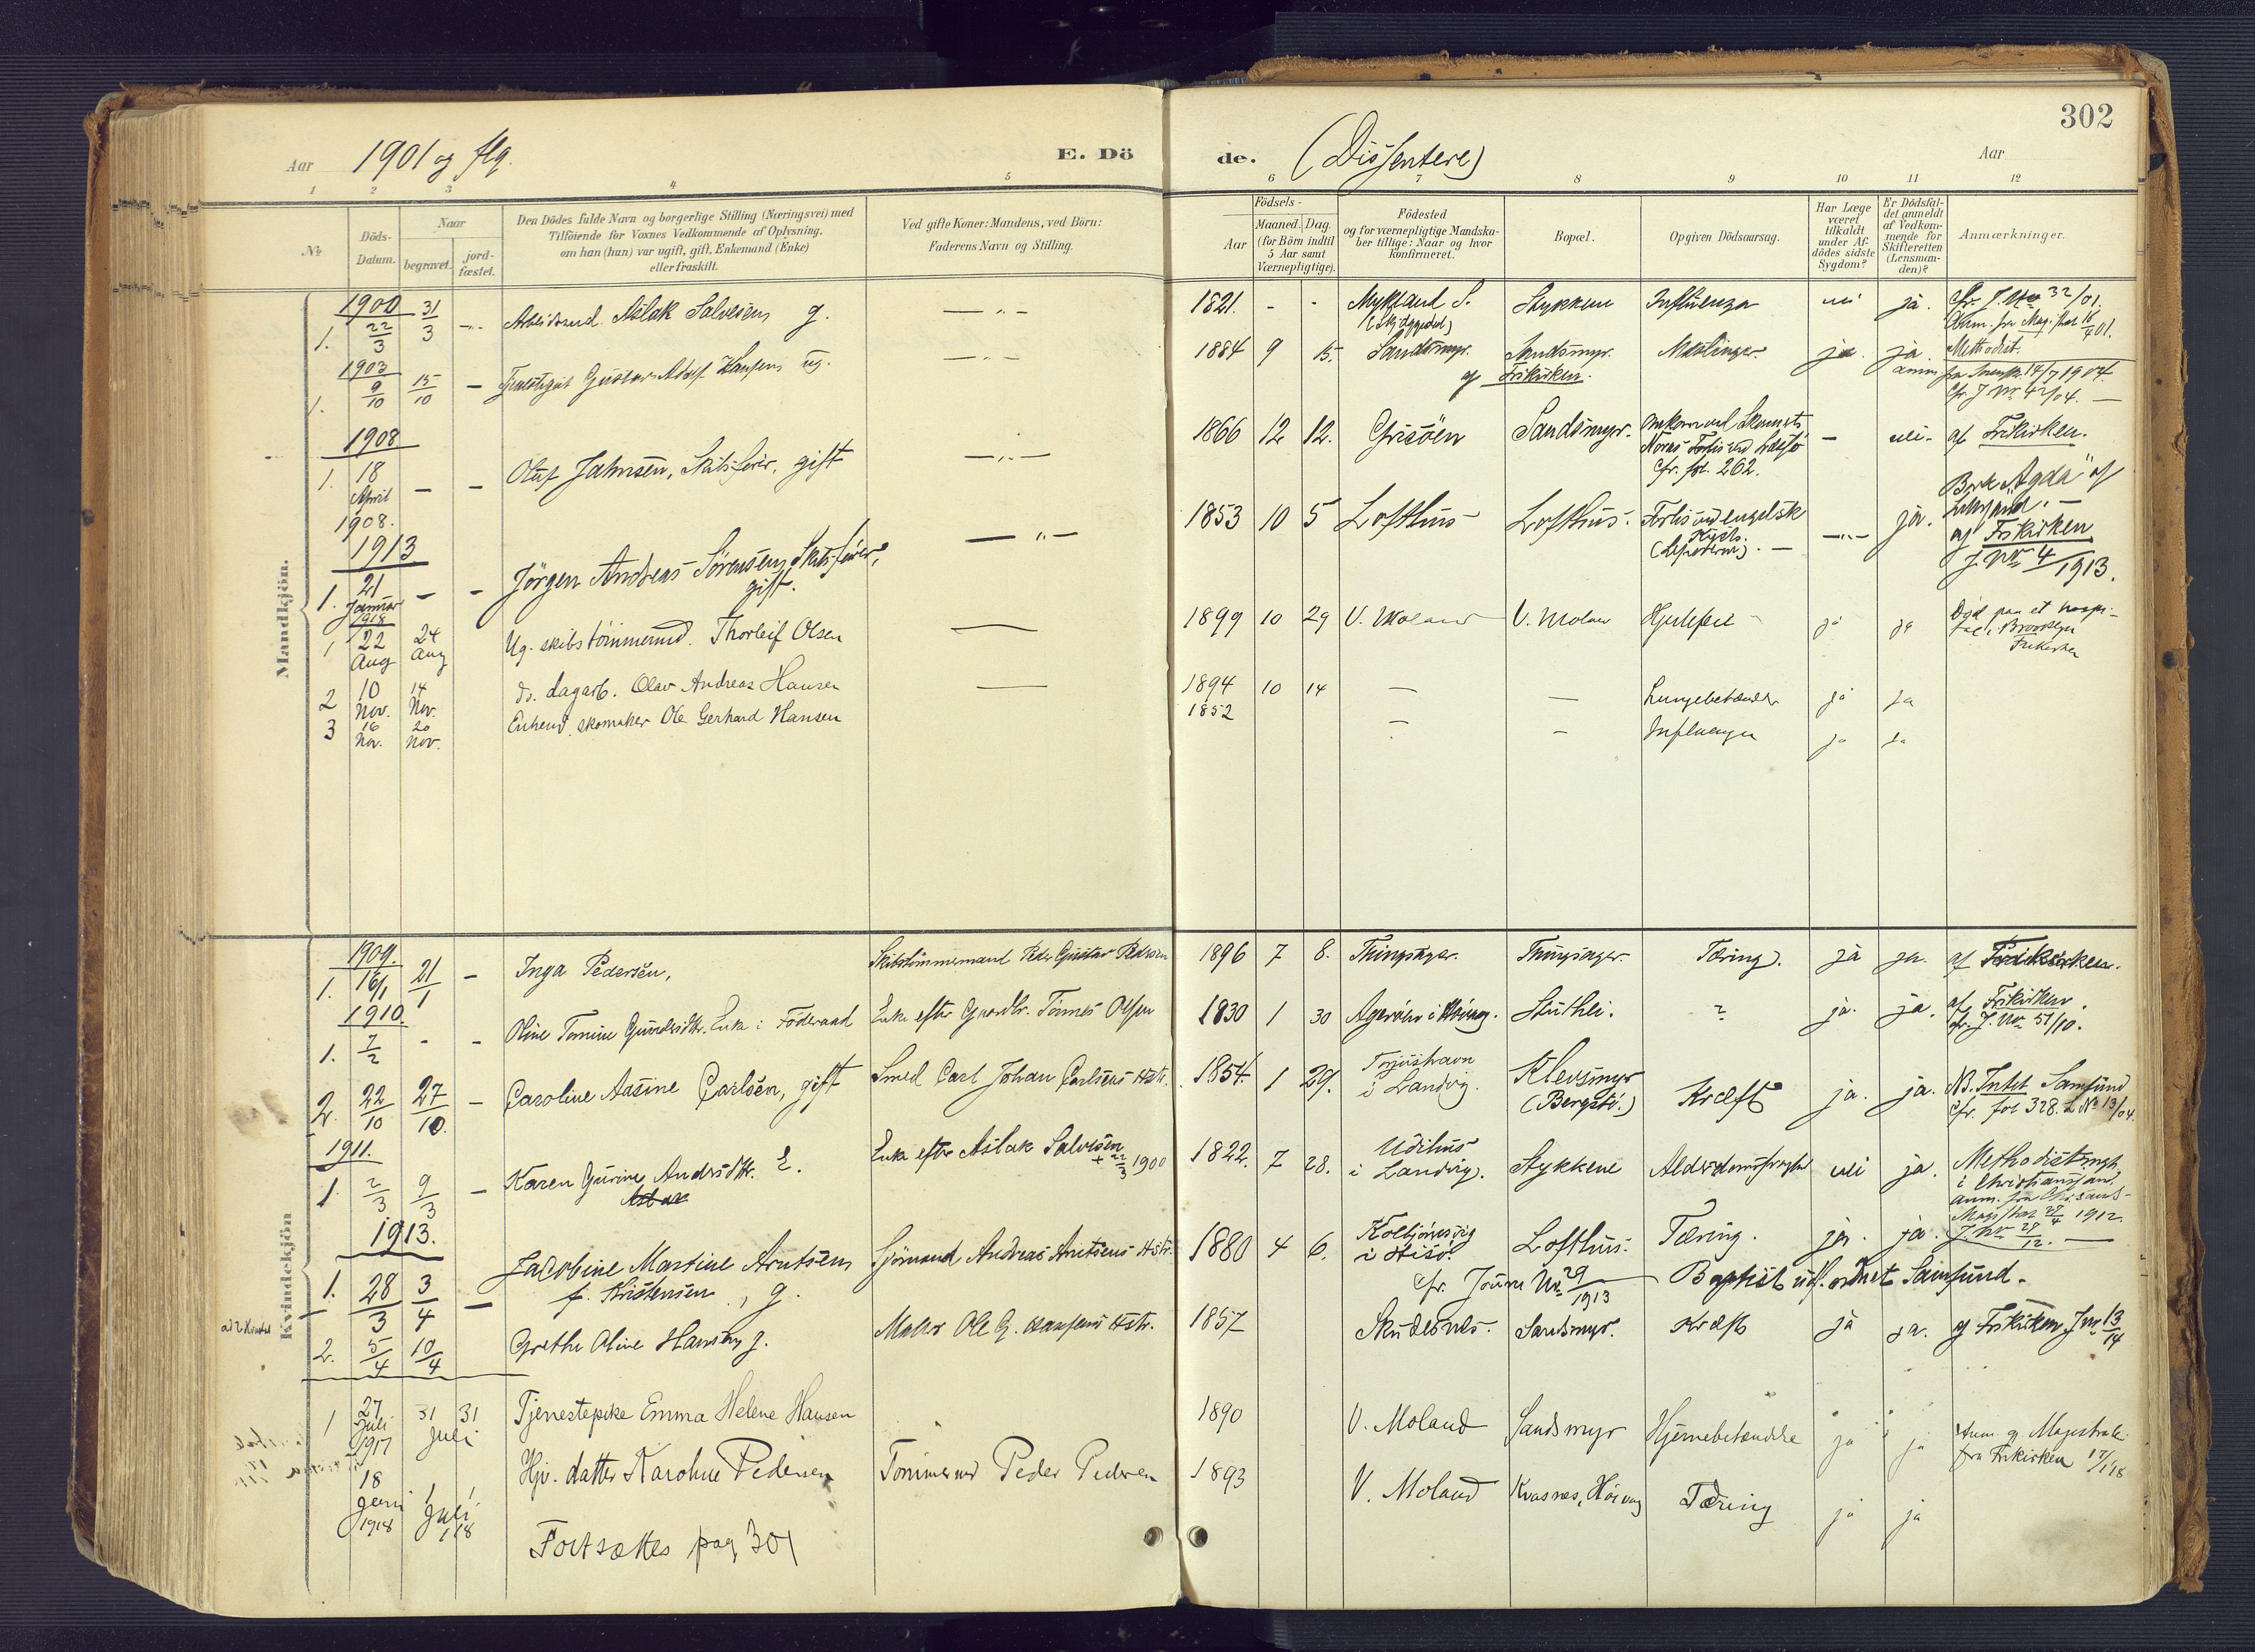 302
Aar 1901 og flg. E. Dö de. (Dissentere) Aar
1 2 3 4 5 6 7 8 9 10 11 12
№ Döds-Datum. Naar begravet. jord-fæstet.
Den Dödes fulde Navn og borgerlige Stilling (Næringsvei) med
Tilföiende for Voxnes Vedkommende af Oplysning,
om han (hun) var ugift, gift, Enkemand (Enke)
eller fraskilt.
Ved gifte Koner: Mandens, ved Börn:
Faderens Navn og Stilling.
Födsels-
Aar Maaned. Dag.
(for Börn indtil
5 Aar samt
Værnepligtige).
Födested
og for værnepligtige Mandska-
ber tillige: Naar og hvor
konfirmeret.
Bopæl.
Opgiven Dödsaarsag.
Har Læge
været
tilkaldt
under Af-
dödes sidste
Sygdom?
Er Dödsfal-
det anmeldt
af Vedkom-
mende for
Skifteretten
(Lensman-
den)?
Anmærkninger.
Mandkjön.
1900
1. 22/3 31/3 Aslak Salvesen g. 1821. - - Mykland S. Stykkene Influenza nei ja. cfr. J. No 32/01.
Methodist.
1903
1. 9/10 15/10 - Gustav Adolf Hansen ug. 1884 9 15. Sandsmyr. Sandsmyr. Mæslinger ja. ja.
af Frikirken. 14/7 1904.
cfr. J No 42/04. —
1908
1. 18 April 1908. - - Olaf Jahnsen, Skibsförer, gift 1866 12 12. Grisöen Sandsmyr. - nei. af Frikirken.
cfr. fol. 262.
Bark "Agda" af
Lillesand. —
1913
1. 21 Januar - - Jörgen Andreas Sörensen, Skibsförer,
gift. 1853 10 5 Lofthus Lofthus. Forlis ved engelsk
Kyst. ja. af Frikirken
J No 4/1913.
1918
1 22 Aug 24 Aug Ug. skibstömmermd. Thorleif Olsen — 1899 10 29 V. Moland V. Moland Hjertefeil ja ja Död paa et hospi-
tal i Brooklyn
Frikirken
2 10 Nov. 14 Nov. do. dagarb. Olav Andreas Hansen — 1894 10 14 — — Lungebetændelse ja ja
3 16 Nov. 20 Nov. Enkemd. skomaker Ole Gerhard Hansen 1852 — — Influenza ja ja
Kvindekjön
1909.
1. 16/1 21/1 - Inga Pedersen, Skibstömmermand Peder Gustav Pedersen 1896 7 8. Thingsager. Thingsager. Tæring. ja ja. af Frikirken.
1910.
1. 7/2 - - Oline Tomine Gundersdtr. Enke i Föderaad Enke efter Gaardbr. Tönnes Olsen 1830 1 30 Agerøen i Høivag. Stuthei. ? ja. ja. af Frikirken.
cfr. J. No 51/10.
2. 22/10 27/10. - Caroline Aasine Carlsen, gift Smed Carl Johan Carlsens Hstr. 1854. 1 29. Torjushavn
i Landvig. Klevsmyr
(Bergstö.) Kræft ja. ja. NB. Intet Samfund
cfr. fol 328. L No 13/04.
1911.
1. 2/3 9/3 - Karen Gurine Andersdtr. E. Enke efter Aslak Salvesen
+ 22/3 1900 1822. 7 28. Udihus
i Landvig. Stykkene Alderdomssvaghed nei ja. Methodistmgh.
i Christianssand.
1912.
1913.
1. 28/3 3/4 - Jacobine Martine Arntsen
f. Kristensen, g. Sjömand Andreas Arntsens Hstr. 1880 4 6. Kolbjörnsvig
i Hisö. Lofthus. Tæring. ja. ja.
cfr. Journ No 29/1913 — Baptist udf. ordnet Samfund.
2. 5/4 10/4 Grethe Oline Hansen g. Maler Ole G. Hansens Hstr. 1857 Skudesnes. Sandsmyr. Kræft ja ja. af Frikirken J No 13/14
1 27 Juli 1917 31 31 Juli Tjenestepike Emma Helene Hansen 1890 V. Moland Sandsmyr Hjernebetændelse ja ja Anm. af Magistraten
fra Frikirken
18 Juni 1918 1 1 Juli 118 Hjv. datter Karoline Pedersen Tömmermd Peder Pedersen 1893 V. Moland Kvasnes, Höivag Tæring ja ja
Fortsættes pag 301